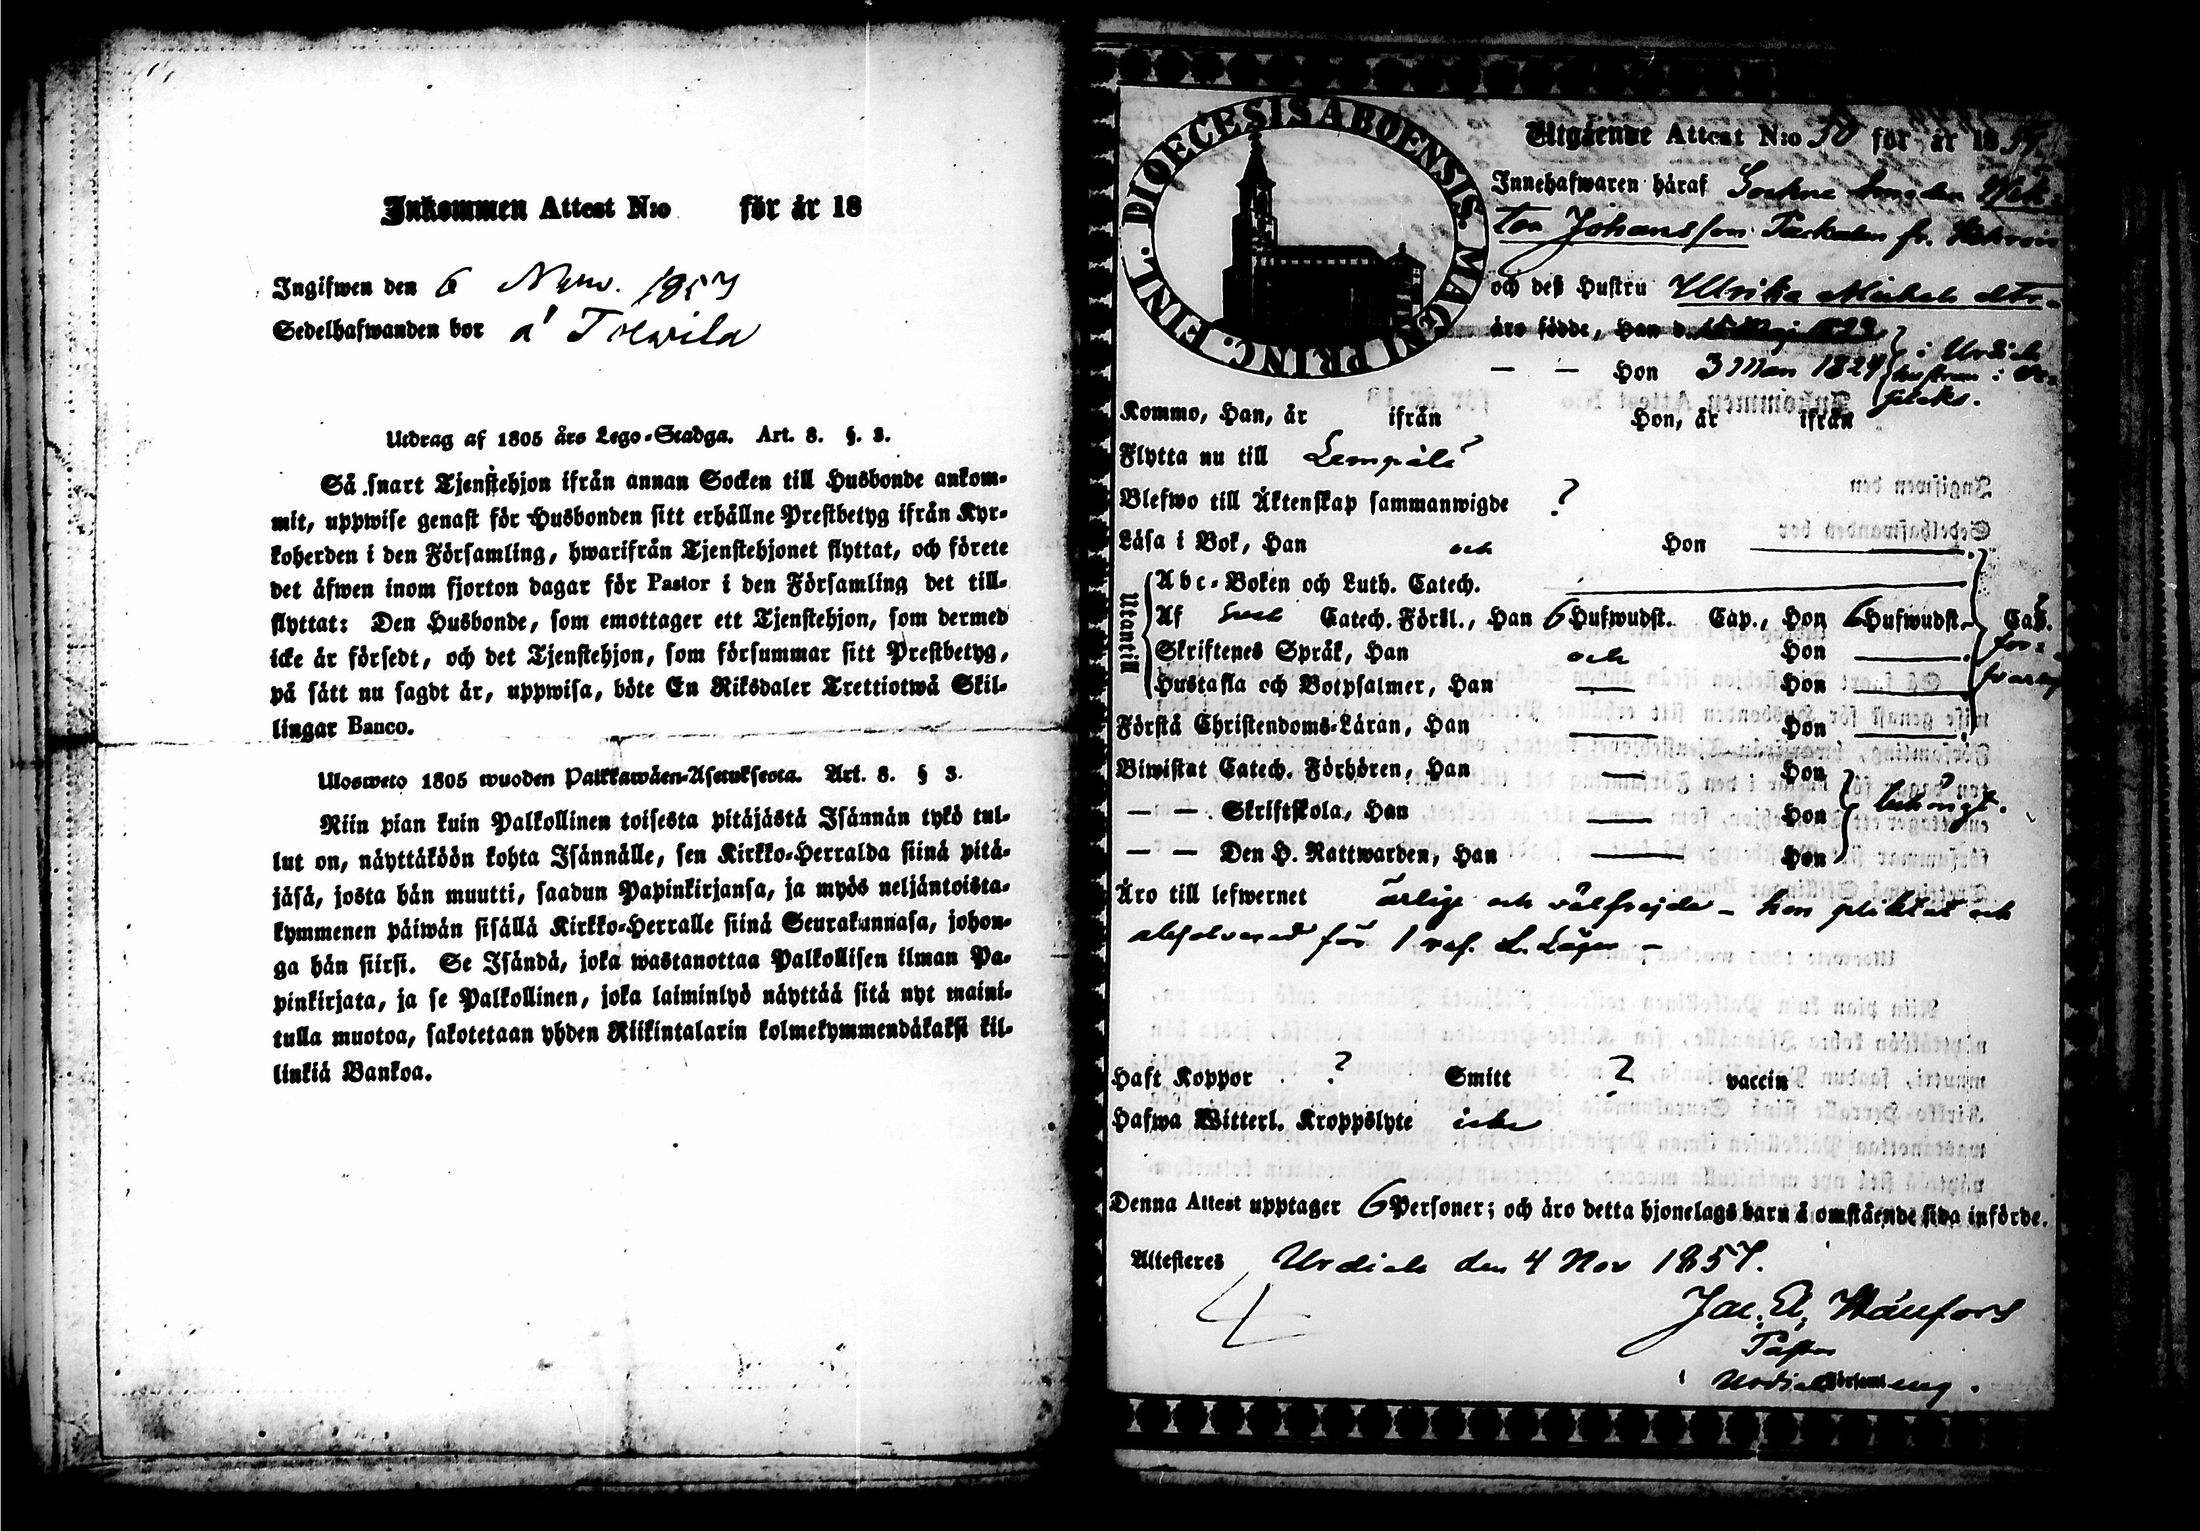 Inkommen Attest N:o för år 18
Ingifwen den 6 Now. 1857
Sedelhafwanden bor å
Utdrag af 1805 års Lego-Stadga. Art. 8. §. 3.
Så snart Tjenstehjon ifrån annan Socken till Husbonde ankom-
mit, uppwise genast för Husbonden sitt erhållne Prestbetyg ifrån Kyr-
koherden i den Församling, hwarifrån Tjenstehjonet flyttat, och förete
det äfwen inom fjorton dagar för Pastor i den Församling det till-
flyttat: Den Husbonde, som emottager ett Tjenstehjon, som dermed
icke är försedt, och det Tjenstehjon, som försummar sitt Prestbetyg,
på sätt nu sagdt är, uppwisa, böte En Riksdaler Trettiotwå Skil-
lingar Banco.
Ulosweto 1805 wuoden Palkkawäen-Asetuksesta. Art. 8. § 3.
Niin pian kuin Palkollinen toisesta pitäjästä Isännän tykö tul-
lut on, näyttäköön kohta Isännälle, sen Kirkko-Herralda siinä pitä-
jäsä, josta hän muutti, saadun Papinkirjansa, ja myös neljäntoista-
kymmenen päiwän sisällä Kirkko-Herralle siinä Seurakunnasa, johon-
ga hän siirsi. Se Isändä, joka wastanottaa Palkollisen ilman Pa-
pinkirjata, ja se Palkollinen, joka laiminlyö näyttää sitä nyt maini-
tulla muotoa, sakotetaan yhden Riikintalarin kolmekymmendäkaksi kil-
linkiä Bankoa.
DIOECESIS ABOENSIS. MAGNI PRINC. FINL.
Utgående Attest N:o 50 för år 1857.
Innehafwaren häraf Sockne Smeden
Johansson fr.
och deß Hustru Ulrika Michelsdtr
äro födde, Han d. 15 Maj 1823 i Urdiala
— — Hon 3 Mars 1824 hustrun i
Kommo, Han, år ifrån Hon, år ifrån
Flytta nu till Lempälä
Blefwo till Äktenskap sammanwigde ?
Läsa i Bok, Han och Hon
Utantill
Abc-Boken och Luth. Catech.
Af Catech. Förkl., Han 6 Hufwudst. Cap., Hon 6 Hufwudst. Cap.
Skriftenes Språk, Han och Hon
Hustafla och Botpsalmer, Han — Hon — försvarlig
Förstå Christendoms-Läran, Han — Hon —
Biwistat Catech. Förhören, Han — Hon
— — Skriftskola, Han — Hon behörigt.
— — Den H. Nattwarden, Han — Hon
Äro till lefwernet ärlige och välfrejdade – hon pliktat och
absolverad för 1 res. L. Läger –
Haft Koppor ? Smitt ? vaccin
Hafwa Witterl. Kroppslyte icke
Denna Attest upptager 6 Personer; och äro detta hjonelags barn å omstående sida införde.
Attesteres Urdiala den 4 Nov 1857.
Jac. El. Wänfors
Pastor
i Urdiala Församling.